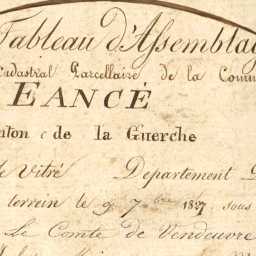 Tableau d'Assemblag
Cadastral Parcellaire de la Comm
EANCÉ
nton de la Guerche
de Vitré Departement
terrein le 9 7bre 1827 sous
Le Comte de Vendeuvre